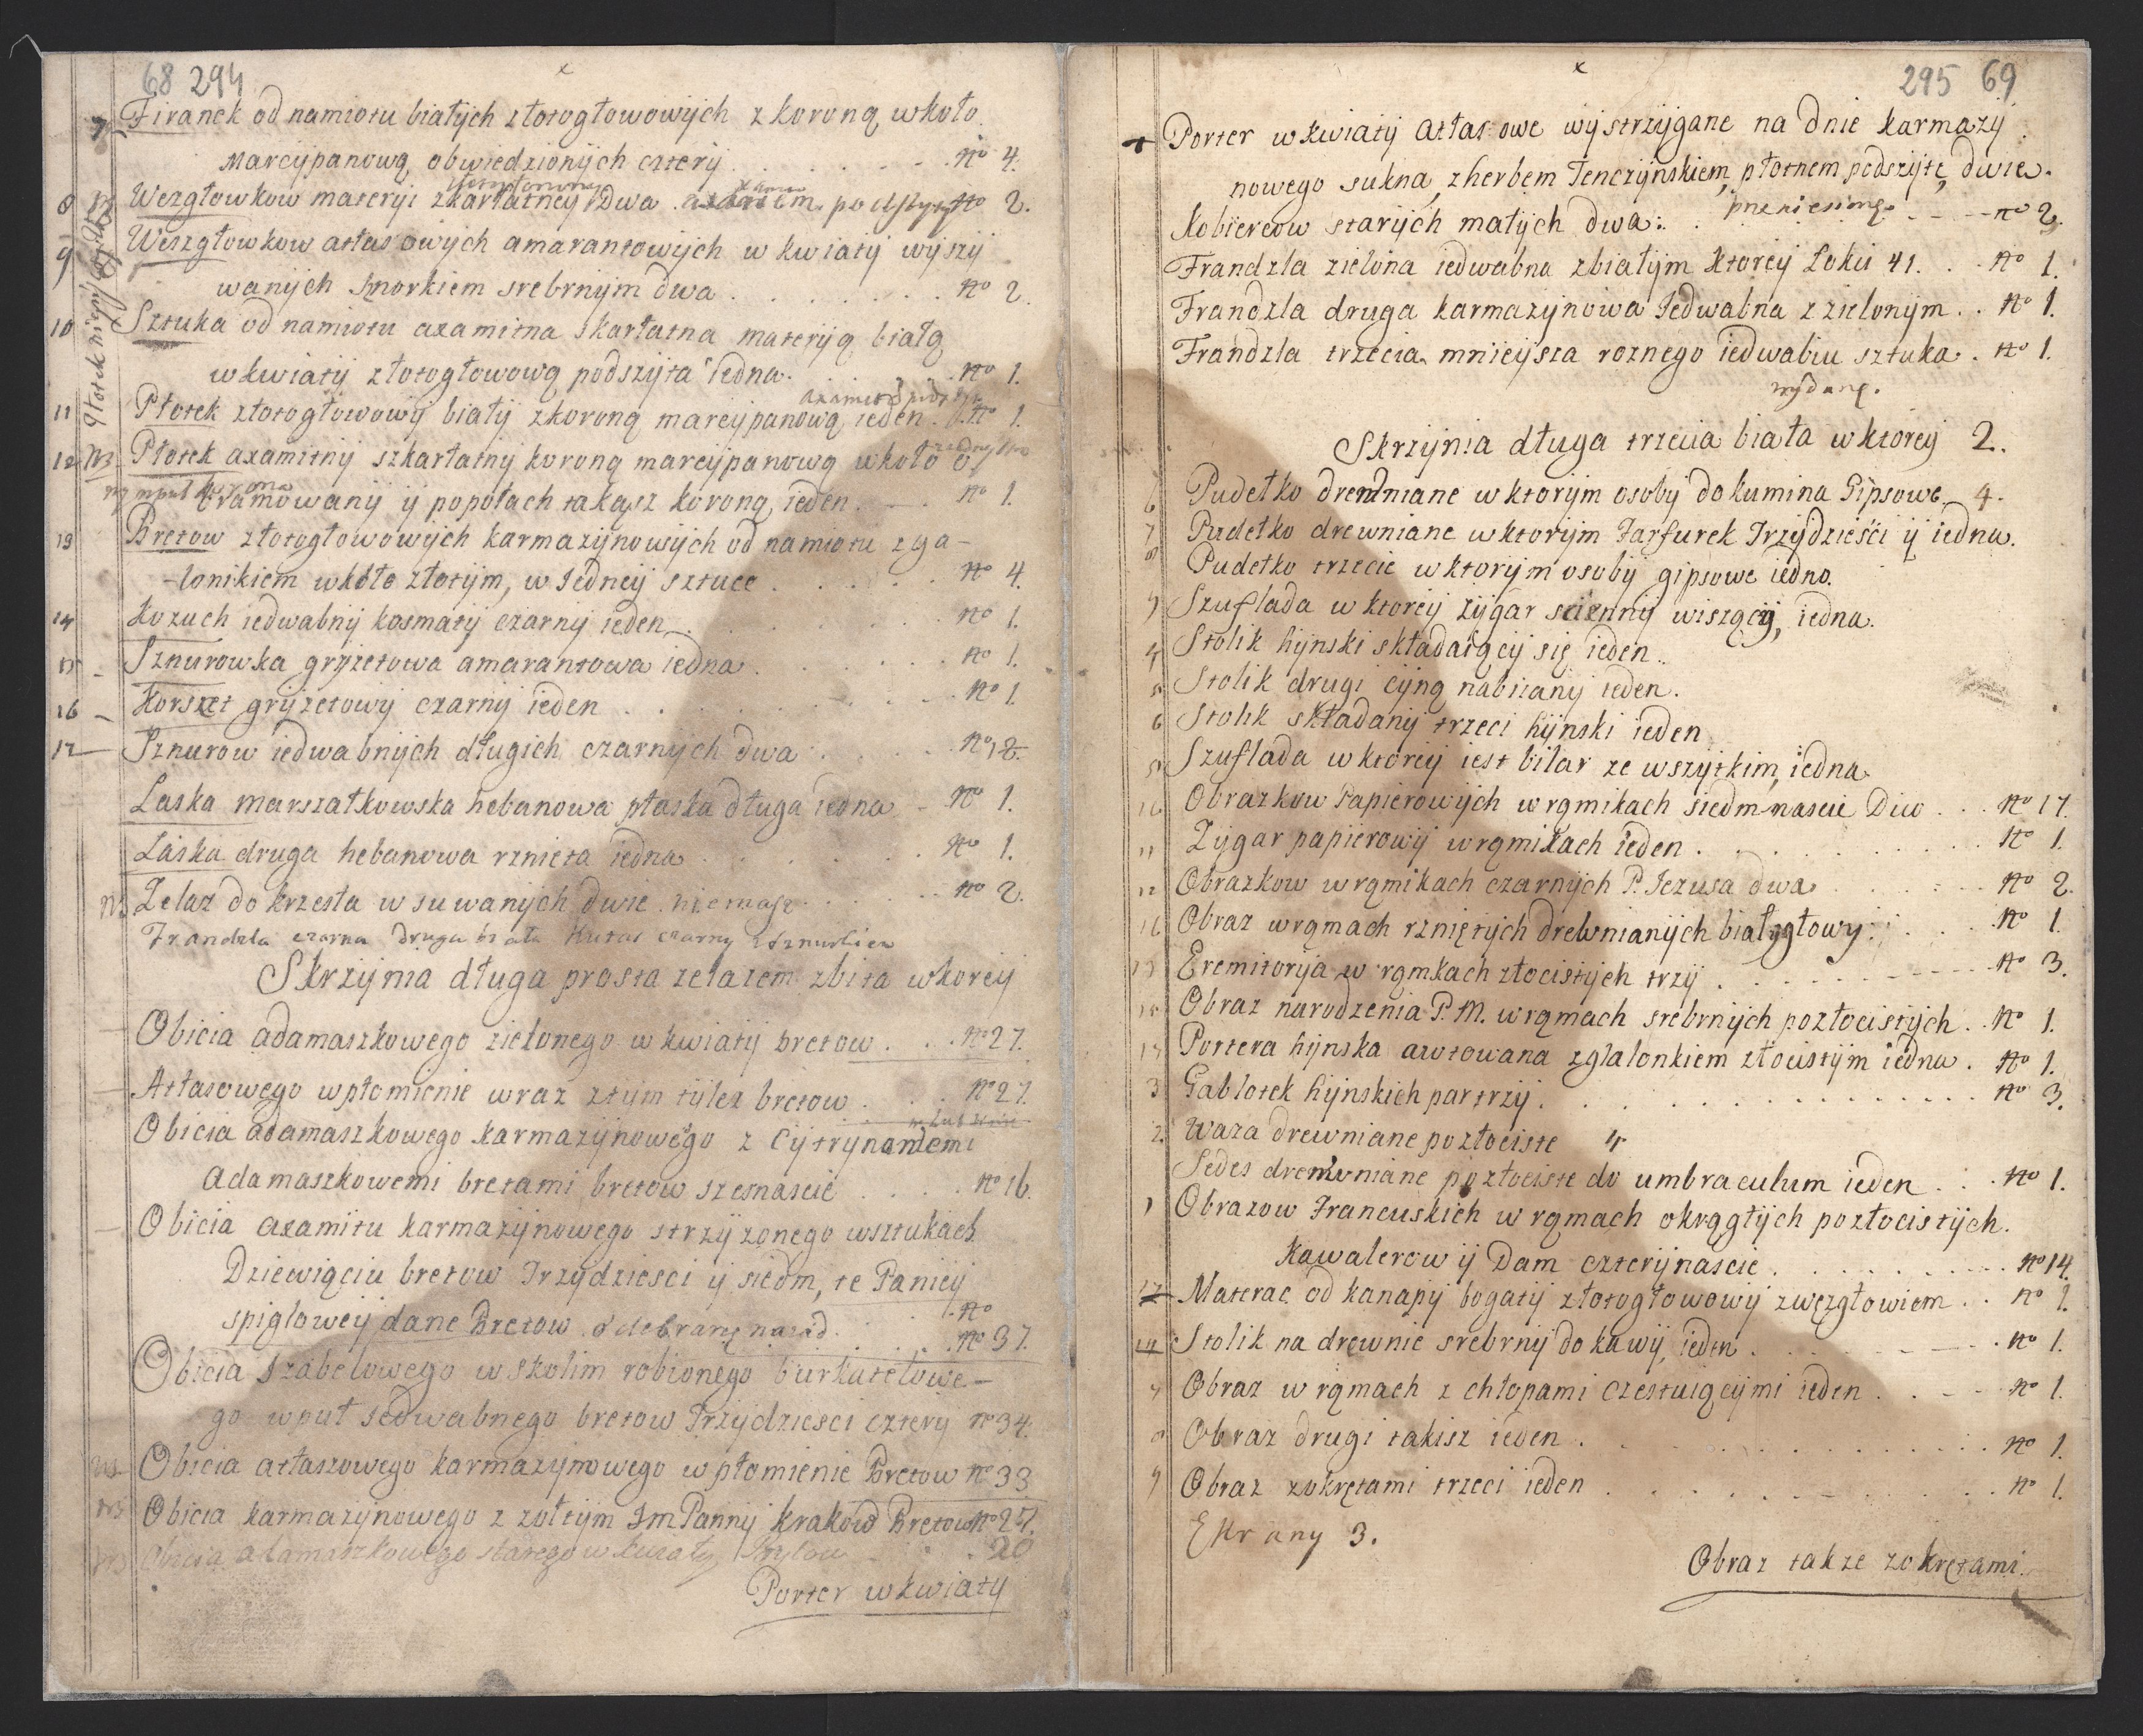 68 294
7 Firanek od namiotu białych złotogłowowych z koroną wkoło
Marcypanową, obwiedzionych cztery . . . . . No 4.
8 Wezgłowkow materyi szkarłatney dwa podszyte No 2.
9 Weszgłowkow atłasowych amarantowych w kwiaty wyszy
wanych sznorkiem srebrnym dwa . . . . . No 2.
10 Sztuka od namiotu axamitna skarłatna materyą białą
w kwiaty złotogłowową podszyta iedna . . . No 1.
11 Płotek złotogłowowy biały z koroną marcypanową ieden . No 1.
12 Płotek axamitny szkarłatny koroną marcypanową wkoło o,
bramowany y popołach takąsz koroną, ieden . . No 1.
13 Bretow złotogłowowych karmazynowych od namiotu z ga-
-lonikiem wkoło złotym, w Jedney sztuce . . . . No 4.
14 Kozuch iedwabny kosmaty czarny ieden . . . . No 1.
15 Sznurowka gryzetowa amarantowa iedna . . . . No 1.
16 Korszet gryzetowy czarny ieden . . . . . No 1.
17 Sznurow iedwabnych długich czarnych dwa . . . No 2.
Laska marszałkowska hebanowa płaska długa iedna . No 1.
Laska druga hebanowa rznięta iedna . . . . . No 1.
Zelaz do krzesła wsuwanych dwie niemasz . . . No 2.
Frandzla czarna druga biała Kutas czarny z sznurkiem
Skrzynia długa prosta zelazem zbita wkorey
Obicia adamaszkowego zielonego w kwiaty bretow . . . No 27.
Atłasowego w płomienie wraz z tym tylez bretow . . . No 27.
Obicia adamaszkowego karmazynowego z Cytrynowemi
Adamaszkowemi bretami bretow szesnascie . . . . No 16.
Obicia axamitu karmazynowego strzyzonego w sztukach
Dziewięciu bretow Trzydziesci y siedm, te Paniey
spiglowey dane Bretow odebrane nazad . . . No
No 37.
Obicia szabelowego w skolim robionego burkatelowe-
go wpuł Jedwabnego bretow Trzydziesci cztery No 34.
Obicia atłasowego karmazynowego w płomienie Bretow No 33
Obicia karmazynowego z zołtym Jm Panny Krakow Bretow No 27.
Obicia adamaszkowego starego w kwiaty . . . 20
Porter w kwiaty
295 69
Porter w kwiaty Atłasowe wystrzygane na dnie karmazy
nowego sukna, z herbem Tenczynskiem, płotnem podszyte, dwie.
Kobiercow starych małych dwa: . przniesione . . . No 2.
Frandzla zielona iedwabna z białym ktorey Łokci 41. . . No 1.
Frandzla druga karmazynowa Jedwabna z zielonym . . No 1.
Frandzla trzecia mnieysza roznego iedwabiu sztuka . No 1.
wydane.
Skrzynia długa trzecia biała w ktorey 2.
6 Pudełko drewniane w ktorym osoby do kumina Gipsowe – 4.
7 Pudełko drewniane w ktorym Farfurek Trzydzieści y iedna.
8 Pudełko trzecie w ktorym osoby gipsowe iedno.
9 Szuflada w ktorey zygar scienny wiszący, iedna.
4 Stolik hynski składaiący się ieden.
5 Stolik drugi cyną nabitany ieden.
6 Stolik składany trzeci hynski ieden
Szuflada w ktorey iest bilar ze wszytkim, iedna
10 Obrazkow Papierowych w rąmikach siedmnascie Diw . . . No 17.
11 Zygar papierowy w rąmikach ieden . . . . . No 1.
12 Obrazkow w rąmikach czarnych P. Jezusa dwa . . . . . No 2.
Obraz w rąmach rzniętych drewnianych białygłowy . . . No 1.
13 Eremitorya w rąmkach złocistych trzy . . . . . No 3.
Obraz narodzenia P. M. w rąmach srebrnych pozłocistych . . No 1.
Portera hynska awtowana z galonkiem złocistym iedna . No 1.
3 Gablotek hynskich par trzy . . . . . No 3.
2. Waza drewniane pozłociste 4
Sedes drewniane pozłociste do umbraculum ieden . . . No 1.
1 Obrazow Francuskich w rąmach okrągłych pozłocistych.
Kawalerow y Dam czterynascie . . . . . No 14.
Materac od kanapy bogaty złotogłowowy z węzgłowiem . . No 1.
Stolik na drewnie srebrny do kawy, ieden . . . . . No 1.
Obraz w rąmach z chłopami czestuiącymi ieden . . . No 1.
8 Obraz drugi takisz ieden . . . . . No 1.
9 Obraz z okrętami trzeci ieden . . . . . No 1.
Ekrany 3.
Obraz takze z okrętami.